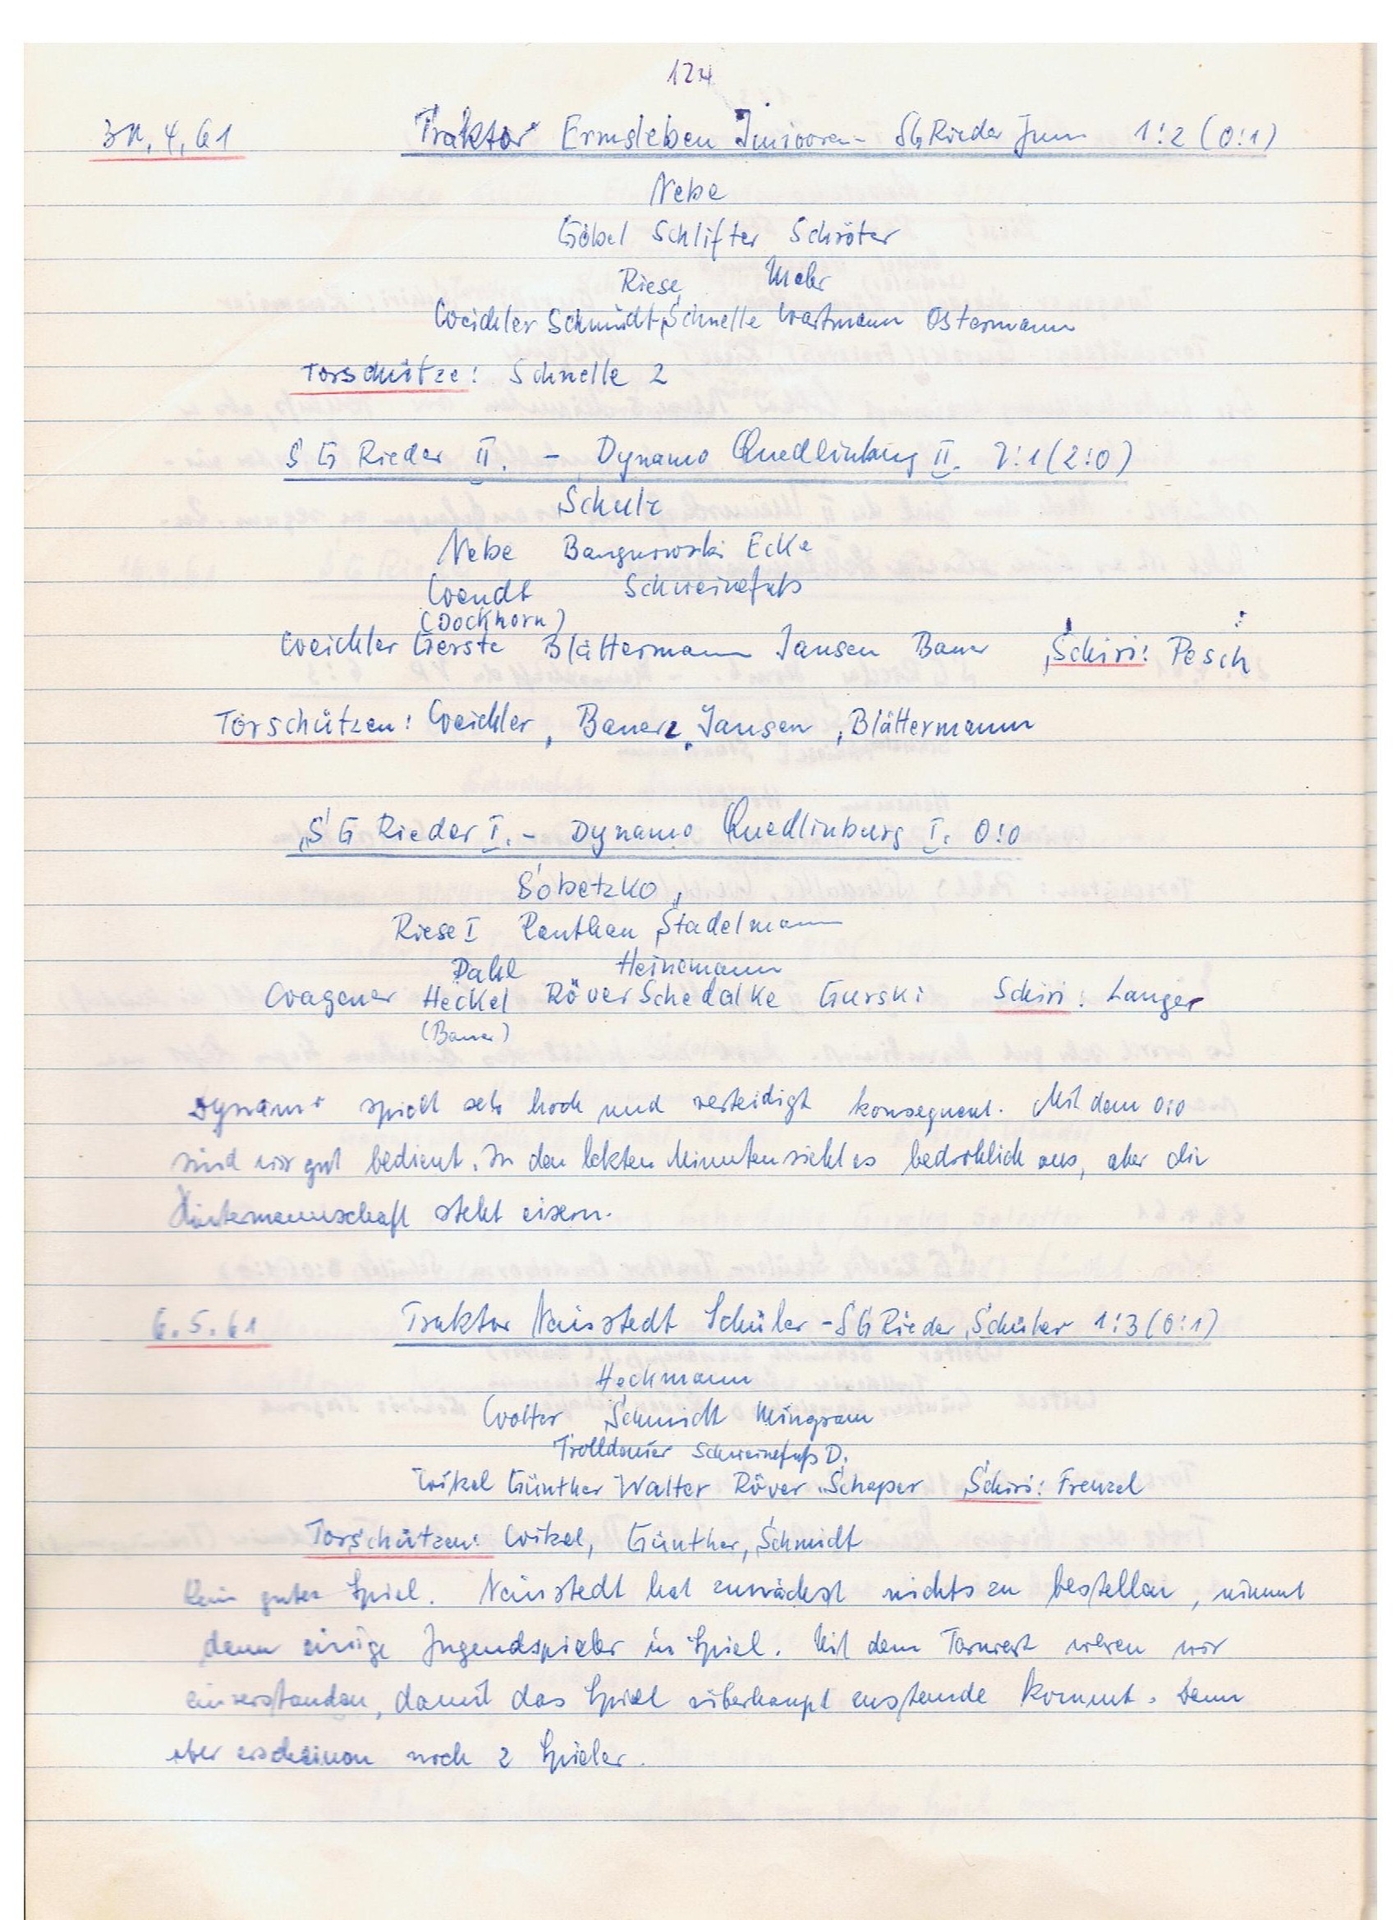 124
30.4.61 Traktor Ermsleben Junioren - SG Rieder Jun 1:2 (0:1)
Nebe
Göbel Schlifter Schröter
Riese Mehr
Weichler Schmidt, Schnelle Wartmann Ostermann
Torschütze: Schnelle 2
SG Rieder II. - Dynamo Quedlinburg II. 7:1 (2:0)
Schulz
Nebe Bangnowski Ecke
Wendt Schweinefuß
(Dockhorn)
Weichler Gerste Blättermann Jansen Bauer Schiri: Pesch
Torschützen: Weichler, Bauer 2, Jansen, Blättermann
SG Rieder I. - Dynamo Quedlinburg I. 0:0
Sobetzko
Riese I Panthen Stadelmann
Pahl Heinemann
Wagener Heckel Röver Schedalke Gurski Schiri: Langer
(Bauer)
Dynamo spielt sehr hoch und verteidigt konsequent. Mit dem 0:0
sind wir gut bedient. In den letzten Minuten sieht es bedrohlich aus, aber die
Hintermannschaft steht eisern.
6.5.61 Traktor Neinstedt Schüler - SG Rieder Schüler 1:3 (0:1)
Heckmann
Wolter Schmidt Mingram
Trolldenier Schweinefuß D.
Wikel Günther Walter Röver Schaper Schiri: Frenzel
Torschützen: Wikel, Günther, Schmidt
Kein gutes Spiel. Neinstedt hat zunächst nichts zu bestellen, nimmt
dann einige Jugendspieler ins Spiel. Mit dem Torwart waren wir
einverstanden, damit das Spiel überhaupt zustande kommt. Dann
aber erscheinen noch 2 Spieler.